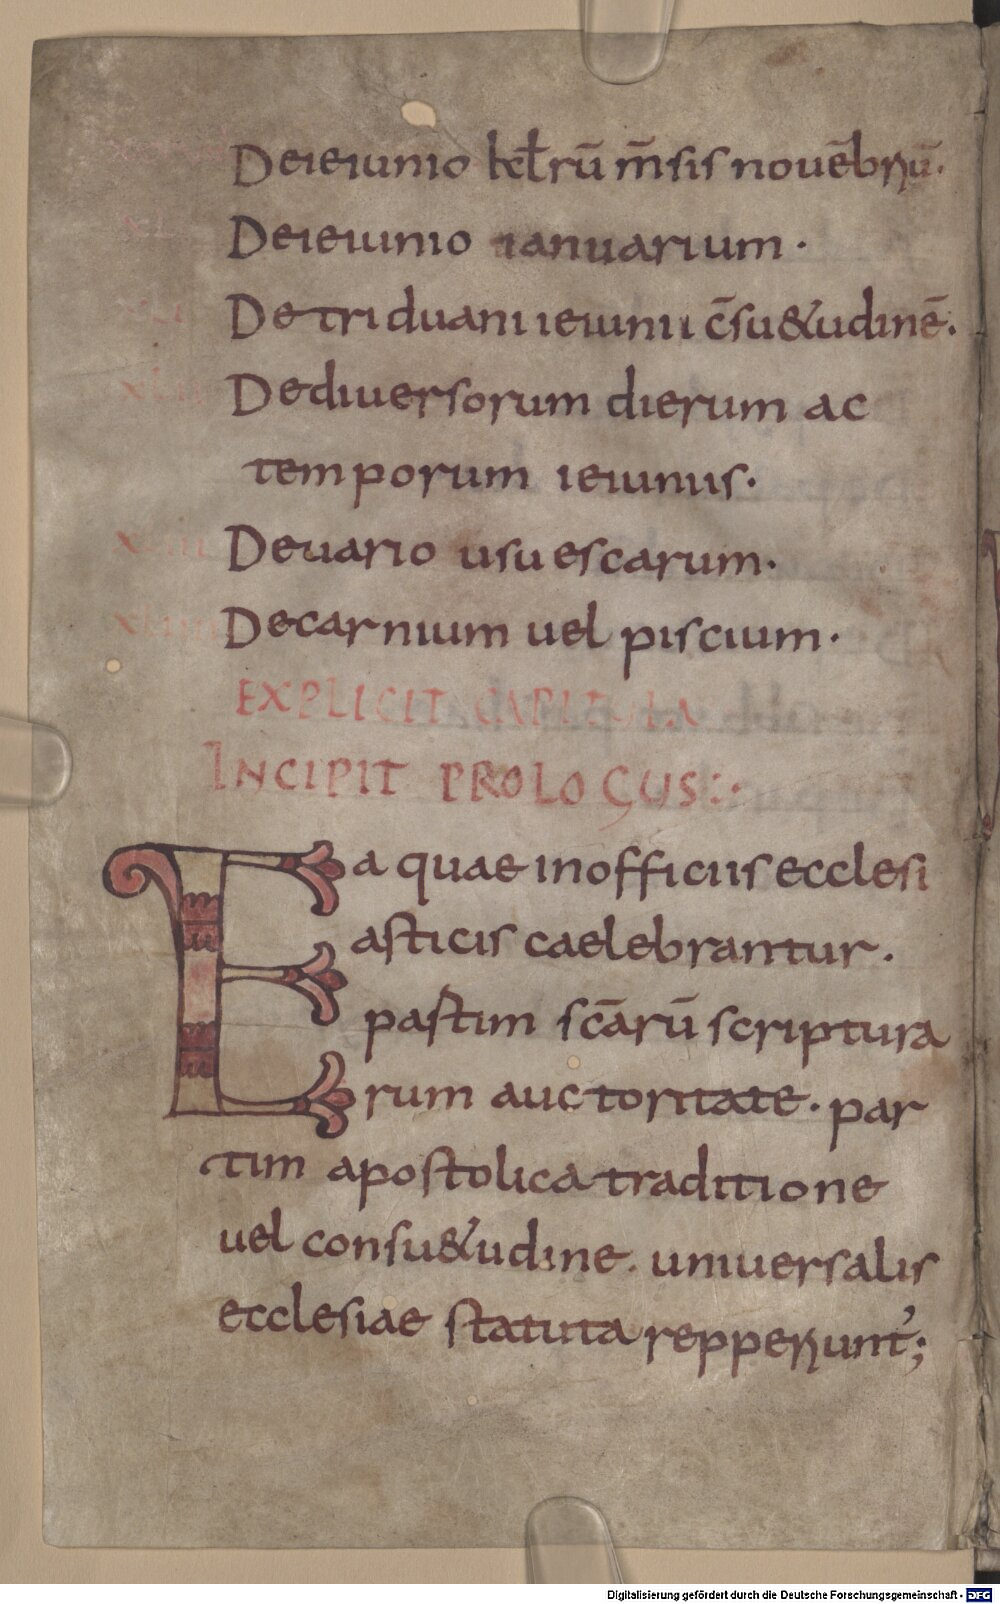 Deieiunio kƚrū m̄sis nouēbrū.
xl Deieiunio ianuarium.
xli Detriduani ieiunii c̄su&udinē.
xlii Dediuersorum dierum ac
temporum ieiuniis.
xliii Deuario usu escarum.
xliiii Decarnium uel piscium.
EXPLICIT CAPITULA
INCIPIT PROLOGUS:.
Ea quae inofficiis ecclesi
asticis caelebrantur.
pastim scārū scriptura
rum auctoritate. par
tim apostolica traditione
uel consu&udine. uniuersalis
ecclesiae statuta repperiunt';
Digitalisierung gefördert durch die Deutsche Forschungsgemeinschaft - DFG